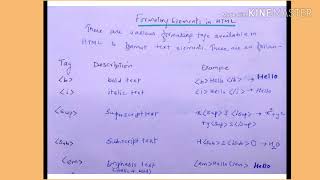 Made with KINEMASTER
Formatting Elements in HTML
There are various formatting tags available in
HTML to format text elements. These are as follow-
Tag Description Example
<b> bold text <b>Hello</b> → Hello
<i> italic text <i>Hello</i> → Hello
<sup> Superscript text x<Sup>2</Sup> → x²+y²
+y<Sup>2</Sup>
<Sub> Subscript text H<Sub>2</Sub>O → H₂O
<em> Emphasis text <em>Hello</em> Hello